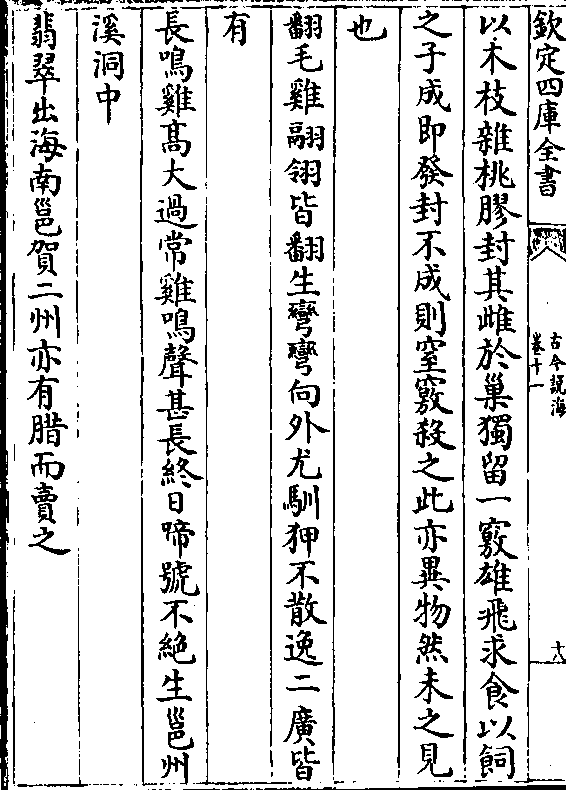 欽定四庫全書
古今說海
卷十一
十八
以木枝雜桃膠封其雌於巢獨留一竅雄飛求食以飼
之子成即發封不成則窒竅殺之此亦異物然未之見
也
翻毛雞翮翎皆翻生彎彎向外尤馴狎不散逸二廣皆
有
長鳴雞髙大過常雞鳴聲甚長終日啼號不絶生邕州
溪洞中
翡翠出海南邕賀二州亦有腊而賣之